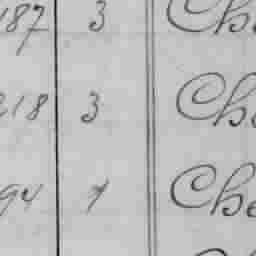 187 3 Ch
218 3 Ch
94 1 Che